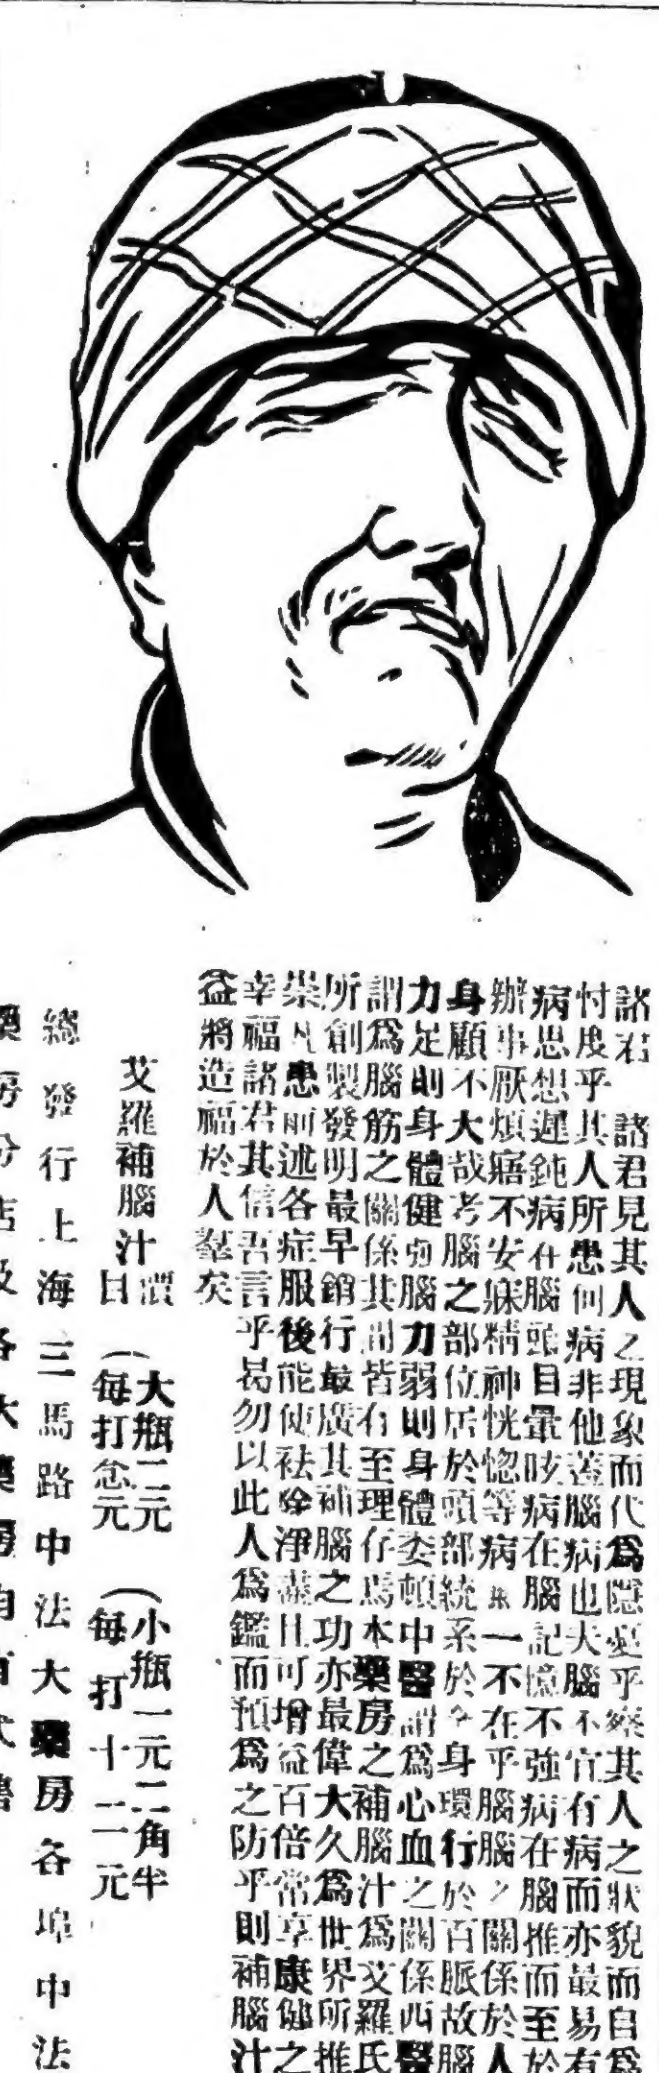 諸君　諸君見其人之現象而代爲隱憂乎察其人之狀貌而自爲
忖度乎其人所患何病非他蓋腦病也夫腦不宜有病而亦最易有
病思想遲鈍病在腦頭目暈眩病在腦記憶不強病在腦推而至於
辦事厭煩寤不安寐精神恍惚等病無一不在乎腦腦之關係於人
身顧不大哉考腦之部位居於頭部統系於全身環行於百脈故腦
力足則身體健強腦力弱則身體委頓中醫謂爲心血之關係西醫
謂爲腦筋之關係其間皆有至理存焉本藥房之補腦汁爲艾羅氏
所創製發明最早銷行最廣其補腦之功亦最偉大久爲世界所推
崇凡患前述各症服後能使祛除淨盡且可增益百倍常享康健之
幸福諸君其信吾言乎曷勿以此人爲鑑而預爲之防乎則補腦汁
益將造福於人羣矣
艾羅補腦汁價目
（大瓶二元　（小瓶一元二角半
（每打念元　（每打十二元
總發行上海三馬路中法大藥房各埠中法
藥房分店及各大藥房均有代售